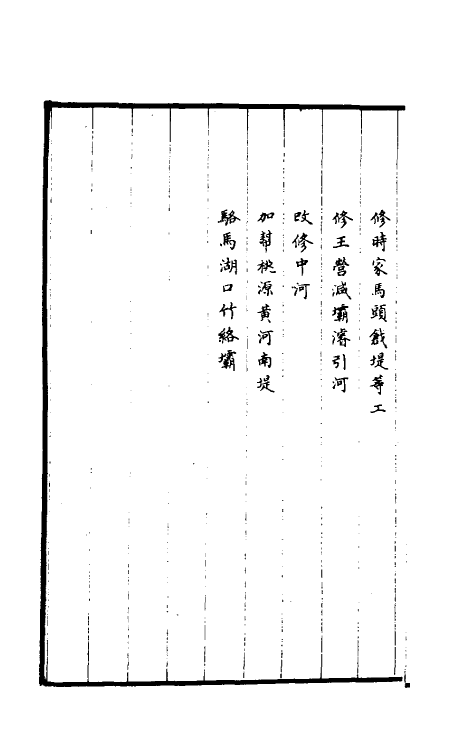 修時家馬頭戧堤等工
修王營減壩濬引河
改修中河
加幫桃源黃河南堤
駱馬湖口竹絡壩